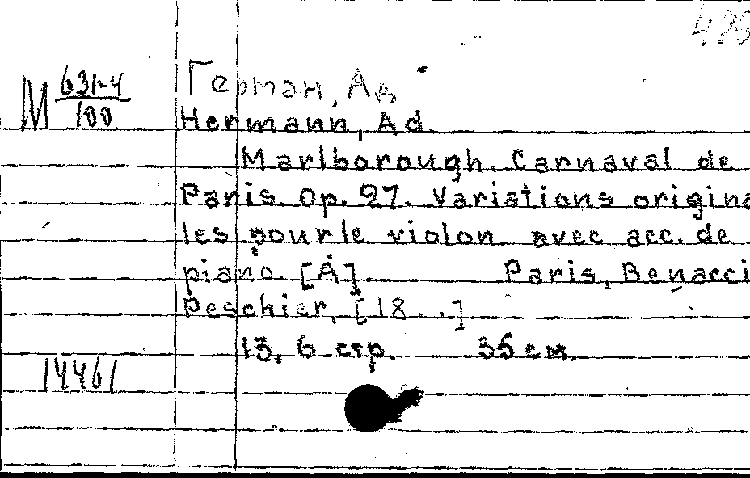 M 631-4
100
Герман, Ад
Hermann, Ad.
Marlborough. Carnaval de
Paris. Op. 27. Variations origina
les pour le violon avec acc. de
piano. [A]. Paris, Benacci
Peschier, [18 . .]
13, 6 стр. 35 см.
14461